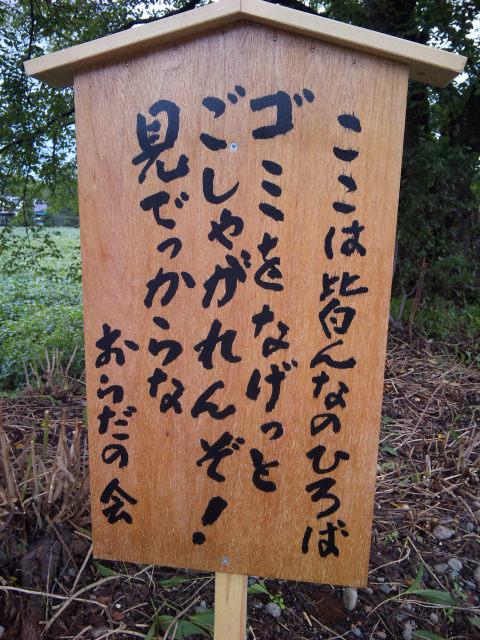 ここは皆んなのひろば
ゴミをなげっと
ごしゃがれんぞ!
見でっからな
おらだの会